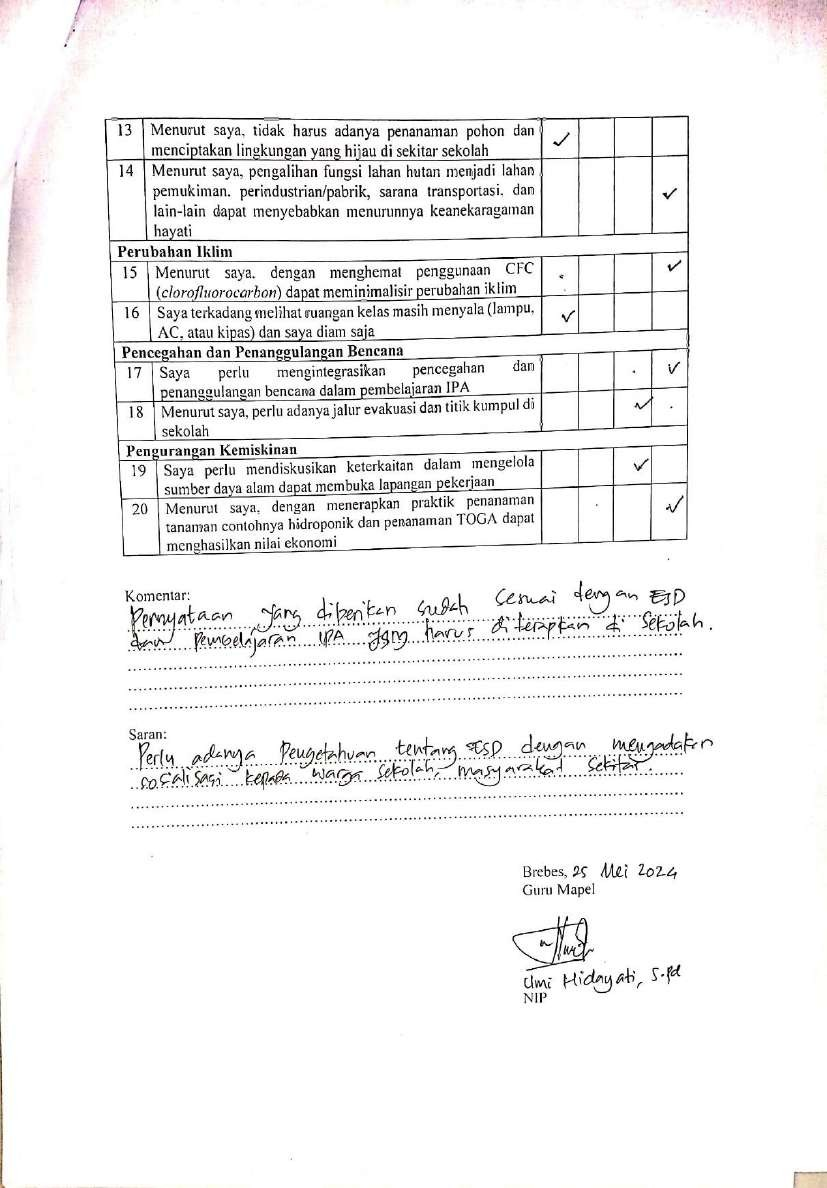 13 Menurut saya, tidak harus adanya penanaman pohon dan
menciptakan lingkungan yang hijau di sekitar sekolah ✓
14 Menurut saya, pengalihan fungsi lahan hutan menjadi lahan
pemukiman, perindustrian/pabrik, sarana transportasi, dan
lain-lain dapat menyebabkan menurunnya keanekaragaman
hayati ✓
Perubahan Iklim
15 Menurut saya, dengan menghemat penggunaan CFC
(clorofluorocarbon) dapat meminimalisir perubahan iklim ✓
16 Saya terkadang melihat ruangan kelas masih menyala (lampu,
AC, atau kipas) dan saya diam saja ✓
Pencegahan dan Penanggulangan Bencana
17 Saya perlu mengintegrasikan pencegahan dan
penanggulangan bencana dalam pembelajaran IPA ✓
18 Menurut saya, perlu adanya jalur evakuasi dan titik kumpul di
sekolah ✓
Pengurangan Kemiskinan
19 Saya perlu mendiskusikan keterkaitan dalam mengelola
sumber daya alam dapat membuka lapangan pekerjaan ✓
20 Menurut saya, dengan menerapkan praktik penanaman
tanaman contohnya hidroponik dan penanaman TOGA dapat
menghasilkan nilai ekonomi ✓
Komentar:
Pernyataan yang diberikan sudah sesuai dengan ESD
dan Pembelajaran IPA yang harus diterapkan di sekolah.
Saran:
Perlu adanya Pengetahuan tentang ESD dengan mengadakan
sosialisasi kepada warga sekolah, masyarakat sekitar.
Brebes, 25 Mei 2024
Guru Mapel
Umi Hidayati, S.Pd
NIP